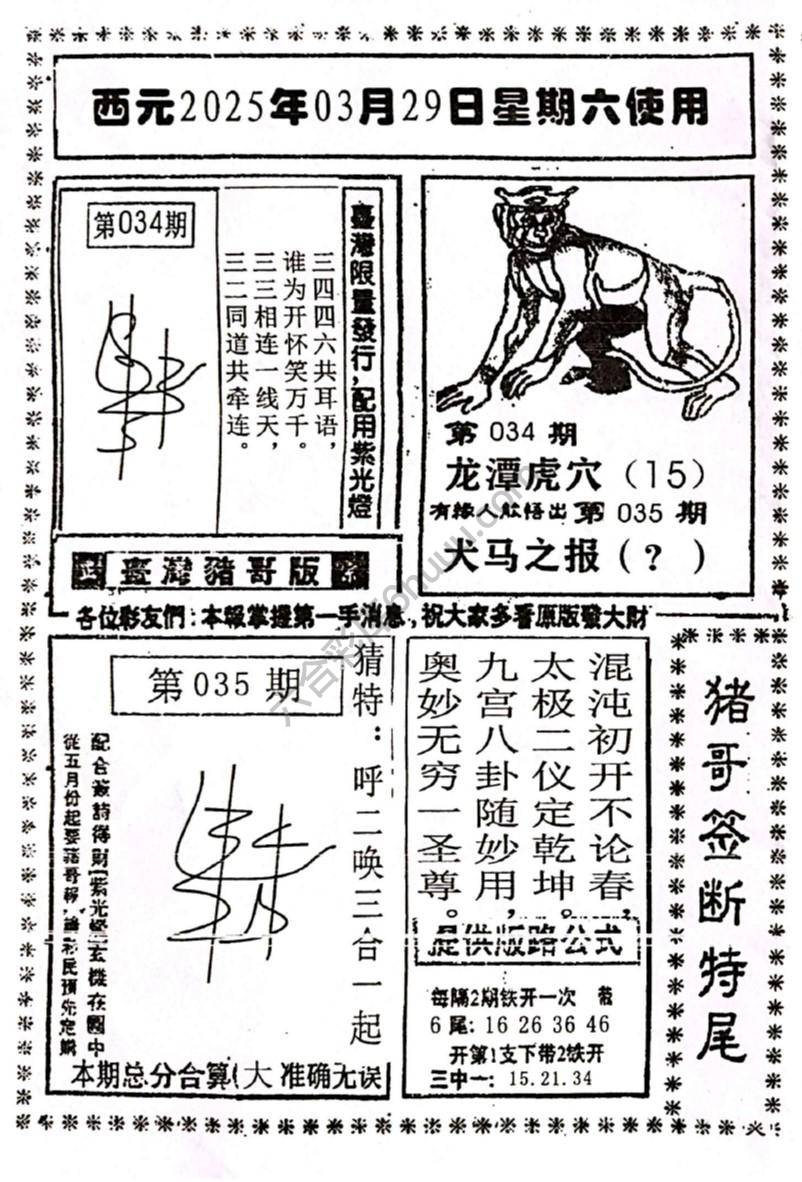 西元2025年03月29日星期六使用
第034期
臺灣限量發行，配用紫光燈
三四四六共耳语，
谁为开怀笑万千。
三三相连一线天，
三二同道共牵连。
臺灣豬哥版
第 034 期
龙潭虎穴（15）
有緣人能悟出 第 035 期
犬马之报（？）
各位彩友們：本報掌握第一手消息，祝大家多看原版發大財
第 035 期
猜特：呼二唤三合一起
本期总分合算（大 准确无误
混沌初开不论春，
太极二仪定乾坤。
九宫八卦随妙用，
奥妙无穷一圣尊。
提供版路公式
每隔2期铁开一次
6尾：16 26 36 46
开第1支下带2铁开
三中一：15.21.34
猪哥签断特尾